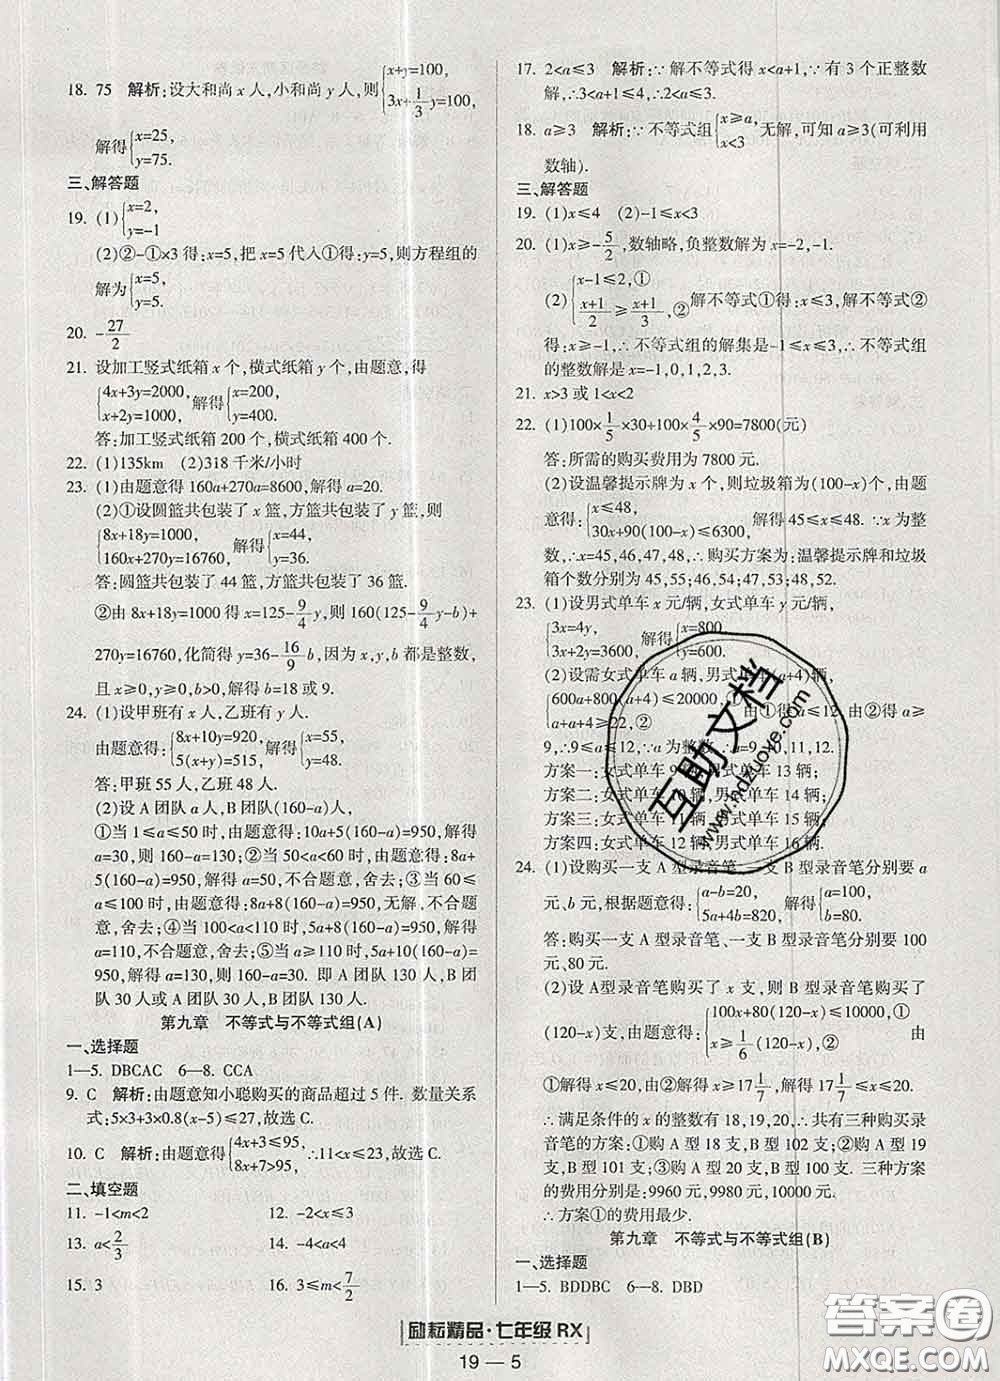 18. 75 解析:设大和尚 x 人,小和尚 y 人,则{x+y=100, 3x+1/3y=100,
解得{x=25, y=75.
三、解答题
19. (1){x=2, y=-1
(2)②-①×3 得:x=5,把 x=5 代入①得:y=5,则方程组的
解为{x=5, y=5.
20. -27/2
21. 设加工竖式纸箱 x 个,横式纸箱 y 个,由题意,得
{4x+3y=2000, x+2y=1000, 解得{x=200, y=400.
答:加工竖式纸箱 200 个,横式纸箱 400 个.
22. (1)135km (2)318 千米/小时
23. (1)由题意得 160a+270a=8600,解得 a=20.
(2)①设圆篮共包装了 x 篮,方篮共包装了 y 篮,则
{8x+18y=1000, 160x+270y=16760, 解得{x=44, y=36.
答:圆篮共包装了 44 篮,方篮共包装了 36 篮.
②由 8x+18y=1000 得 x=125-9/4y,则 160(125-9/4y-b)+
270y=16760,化简得 y=36-16/9b,因为 x,y,b 都是整数,
且 x≥0,y≥0,b>0,解得 b=18 或 9.
24. (1)设甲班有 x 人,乙班有 y 人.
由题意得:{8x+10y=920, 5(x+y)=515, 解得{x=55, y=48.
答:甲班 55 人,乙班 48 人.
(2)设 A 团队 a 人,B 团队(160-a)人,
①当 1≤a≤50 时,由题意得:10a+5(160-a)=950,解得
a=30,则 160-a=130;②当 50<a<60 时,由题意得:8a+
5(160-a)=950,解得 a=50,不合题意,舍去;③当 60
≤a≤100 时,由题意得:8a+8(160-a)=950,无解,不合题
意,舍去;④当 100<a<110 时,5a+8(160-a)=950,解得
a=110,不合题意,舍去;⑤当 a≥110 时,5a+10(160-a)=
950,解得 a=130,则 160-a=30. 即 A 团队 130 人,B 团
队 30 人或 A 团队 30 人,B 团队 130 人.
第九章 不等式与不等式组(A)
一、选择题
1—5. DBCAC 6—8. CCA
9. C 解析:由题意知小聪购买的商品超过 5 件. 数量关系
式:5×3+3×0.8(x-5)≤27,故选 C.
10. C 解析:由题意得{4x+3≤95, 8x+7>95, ∴11<x≤23.故选 C.
二、填空题
11. -1<m<2 12. -2<x≤3
13. a<2/3 14. -4<x<4
15. 3 16. 3≤m<7/2
17. 2<a≤3 解析:∵解不等式得 x<a+1,∵有 3 个正整数
解,∴3<a+1≤4,∴2<a≤3.
18. a≥3 解析:∵不等式组{x≥a, x<3 无解,可知 a≥3(可利用
数轴).
三、解答题
19. (1)x≤4 (2)-1≤x<3
20. (1)x≥-5/2,数轴略,负整数解为 x=-2,-1.
(2){x-1≤2,① x+1/2≥x+1/3,② 解不等式①得:x≤3,解不等式②
得:x≥-1,∴不等式组的解集是-1≤x≤3,∴不等式组
的整数解是 x=-1,0,1,2,3.
21. x>3 或 1<x<2
22. (1)100×1/5×30+100×4/5×90=7800(元)
答:所需的购买费用为 7800 元.
(2)设温馨提示牌为 x 个,则垃圾箱为(100-x)个,由题
意得:{x≤48, 30x+90(100-x)≤6300, 解得 45≤x≤48. ∵x 为整
数,∴x=45,46,47,48,∴购买方案为:温馨提示牌和垃圾
箱个数分别为 45,55;46,54;47,53;48,52.
23. (1)设男式单车 x 元/辆,女式单车 y 元/辆,
{3x=4y, 3x+2y=3600, 解得{x=800 y=600.
(2)设需女式单车 a 辆,男式单车(a+4)辆,
{600a+800(a+4)≤20000,① a+a+4≥22,② 由①得 a≤12,由②得 a≥
9,∴9≤a≤12,∵a 为整数,∴a=9,10,11,12.
方案一:女式单车 9 辆,男式单车 13 辆;
方案二:女式单车 10 辆,男式单车 14 辆;
方案三:女式单车 11 辆,男式单车 15 辆;
方案四:女式单车 12 辆,男式单车 16 辆.
24. (1)设购买一支 A 型录音笔、一支 B 型录音笔分别要 a
元、b 元,根据题意得:{a-b=20, 5a+4b=820, 解得{a=100, b=80.
答:购买一支 A 型录音笔、一支 B 型录音笔分别要 100
元、80 元.
(2)设 A型录音笔购买了 x 支,则 B 型录音笔购买了
(120-x)支,由题意得:{100x+80(120-x)≤10000,① x≥1/6(120-x),② 由
①得 x≤20,由②得:x≥17 1/7,解得:17 1/7≤x≤20.
∴满足条件的 x 的整数有 18,19,20,∴共有三种购买录
音笔的方案:①购 A 型 18 支,B 型 102 支;②购 A 型 19
支,B 型 101 支;③购 A 型 20 支,B 型 100 支. 三种方案
的费用分别是:9960 元,9980 元,10000 元.
∴方案①的费用最少.
第九章 不等式与不等式组(B)
一、选择题
1—5. BDDBC 6—8. DBD
励耘精品·七年级 RX
19 — 5
互助文档
www.hdzuoye.com
答案圈
MXQE.COM